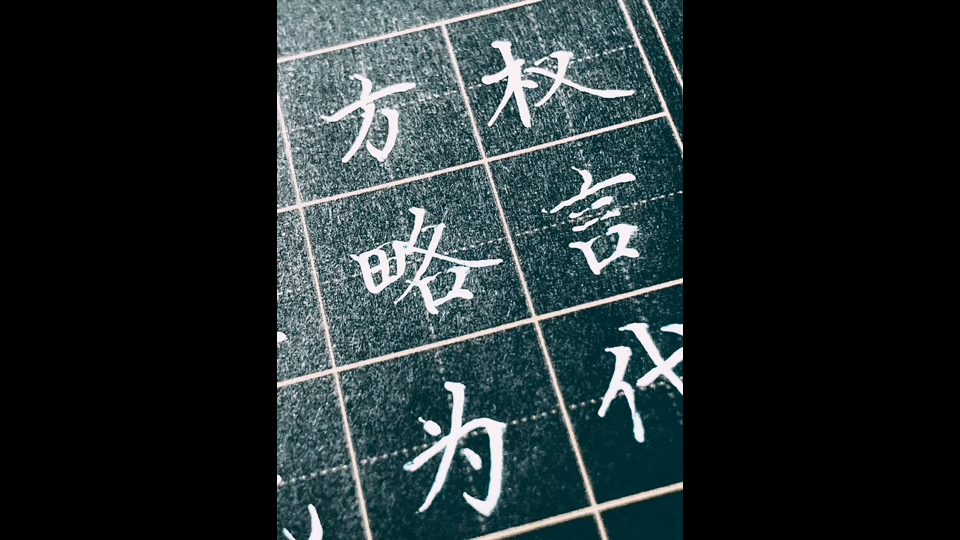 权言代
方略为